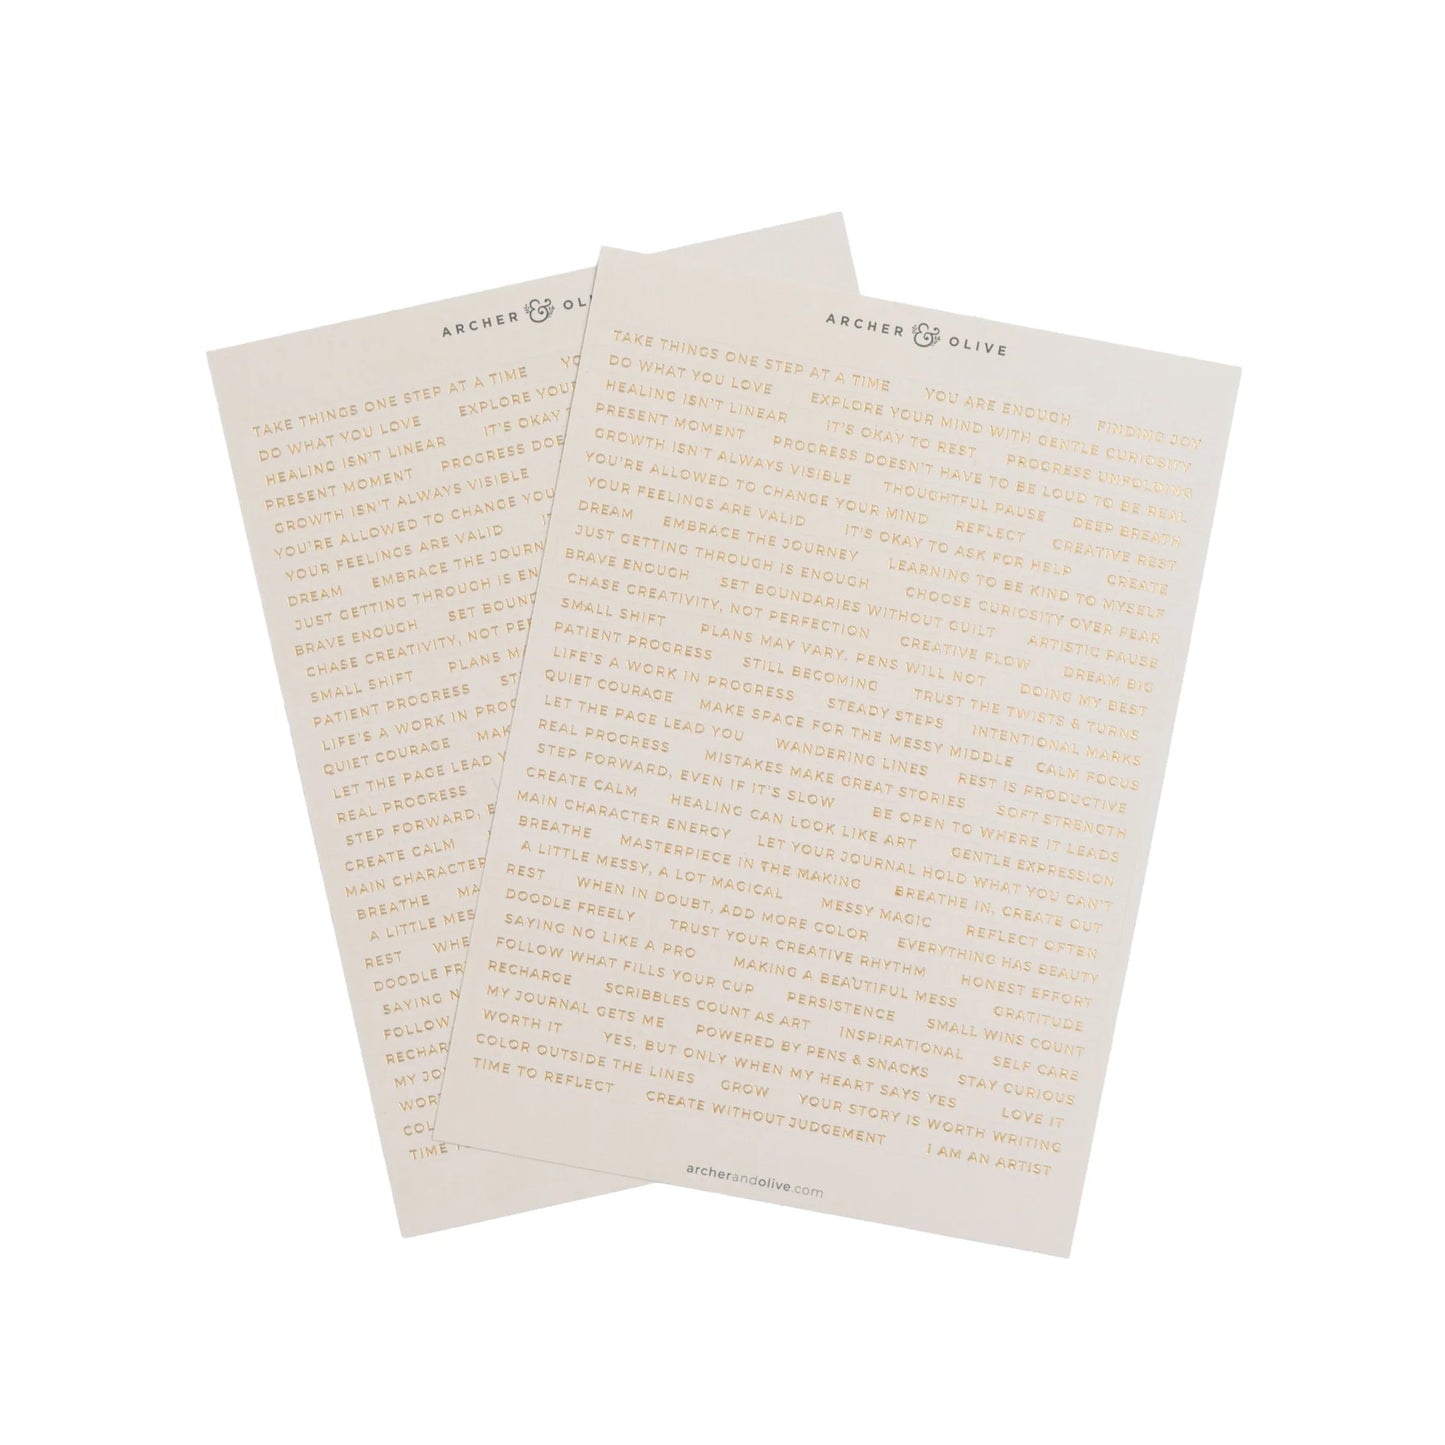 ARCHER & OLI
TAKE THINGS ONE STEP AT A TIME YO
DO WHAT YOU LOVE EXPLORE YOUR
HEALING ISN'T LINEAR IT'S OKAY T
PRESENT MOMENT PROGRESS DOE
GROWTH ISN'T ALWAYS VISIBLE
YOU'RE ALLOWED TO CHANGE YOU
YOUR FEELINGS ARE VALID
DREAM EMBRACE THE JOURN
JUST GETTING THROUGH IS EN
BRAVE ENOUGH SET BOUN
CHASE CREATIVITY, NOT PERF
SMALL SHIFT PLANS M
PATIENT PROGRESS ST
LIFE'S A WORK IN PROG
QUIET COURAGE MAK
LET THE PAGE LEAD Y
REAL PROGRESS
STEP FORWARD, E
CREATE CALM
MAIN CHARACTER
BREATHE MA
A LITTLE MES
REST WHE
DOODLE FR
SAYING N
FOLLOW
RECHAR
MY JO
WOR
COL
TIME T
ARCHER & OLIVE
TAKE THINGS ONE STEP AT A TIME YOU ARE ENOUGH FINDING JOY
DO WHAT YOU LOVE EXPLORE YOUR MIND WITH GENTLE CURIOSITY
HEALING ISN'T LINEAR IT'S OKAY TO REST PROGRESS UNFOLDING
PRESENT MOMENT PROGRESS DOESN'T HAVE TO BE LOUD TO BE REAL
GROWTH ISN'T ALWAYS VISIBLE THOUGHTFUL PAUSE DEEP BREATH
YOU'RE ALLOWED TO CHANGE YOUR MIND REFLECT CREATIVE REST
YOUR FEELINGS ARE VALID IT'S OKAY TO ASK FOR HELP CREATE
DREAM EMBRACE THE JOURNEY LEARNING TO BE KIND TO MYSELF
JUST GETTING THROUGH IS ENOUGH CHOOSE CURIOSITY OVER FEAR
BRAVE ENOUGH SET BOUNDARIES WITHOUT GUILT ARTISTIC PAUSE
CHASE CREATIVITY, NOT PERFECTION CREATIVE FLOW DREAM BIG
SMALL SHIFT PLANS MAY VARY. PENS WILL NOT DOING MY BEST
PATIENT PROGRESS STILL BECOMING TRUST THE TWISTS & TURNS
LIFE'S A WORK IN PROGRESS STEADY STEPS INTENTIONAL MARKS
QUIET COURAGE MAKE SPACE FOR THE MESSY MIDDLE CALM FOCUS
LET THE PAGE LEAD YOU WANDERING LINES REST IS PRODUCTIVE
REAL PROGRESS MISTAKES MAKE GREAT STORIES SOFT STRENGTH
STEP FORWARD, EVEN IF IT'S SLOW BE OPEN TO WHERE IT LEADS
CREATE CALM HEALING CAN LOOK LIKE ART GENTLE EXPRESSION
MAIN CHARACTER ENERGY LET YOUR JOURNAL HOLD WHAT YOU CAN'T
BREATHE MASTERPIECE IN THE MAKING BREATHE IN, CREATE OUT
A LITTLE MESSY, A LOT MAGICAL MESSY MAGIC REFLECT OFTEN
REST WHEN IN DOUBT, ADD MORE COLOR EVERYTHING HAS BEAUTY
DOODLE FREELY TRUST YOUR CREATIVE RHYTHM HONEST EFFORT
SAYING NO LIKE A PRO MAKING A BEAUTIFUL MESS GRATITUDE
FOLLOW WHAT FILLS YOUR CUP PERSISTENCE SMALL WINS COUNT
RECHARGE SCRIBBLES COUNT AS ART INSPIRATIONAL SELF CARE
MY JOURNAL GETS ME POWERED BY PENS & SNACKS STAY CURIOUS
WORTH IT YES, BUT ONLY WHEN MY HEART SAYS YES LOVE IT
COLOR OUTSIDE THE LINES GROW YOUR STORY IS WORTH WRITING
TIME TO REFLECT CREATE WITHOUT JUDGEMENT I AM AN ARTIST
archerandolive.com